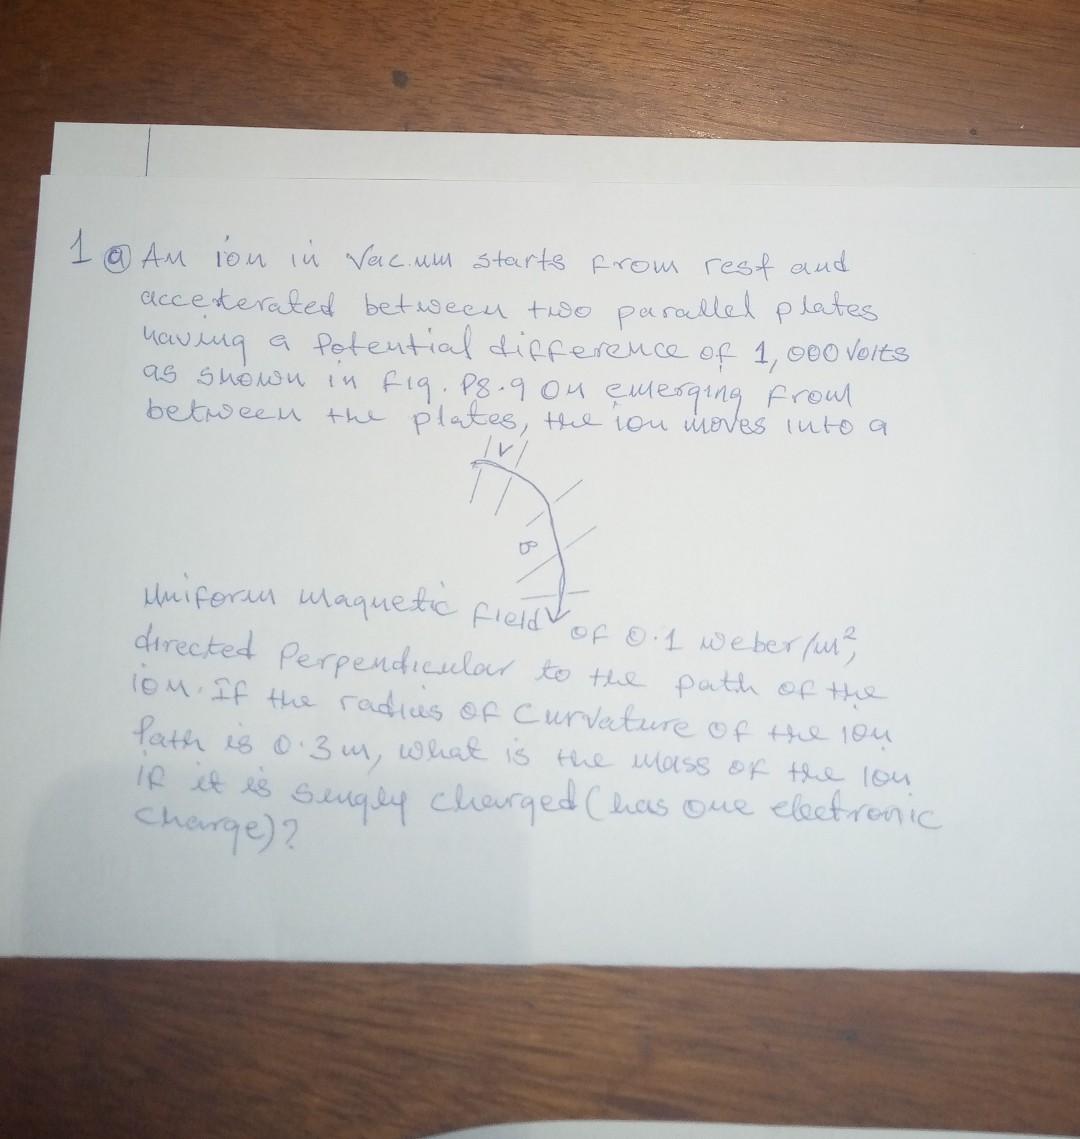 1 a An ion in Vacuum starts from rest and
accelerated between two parallel plates
having a Potential difference of 1,000 Volts
as shown in fig. P8.9 On emerging from
between the plates, the ion moves into a
V
B
Uniform magnetic field of 0.1 weber/m²,
directed Perpendicular to the path of the
ion. If the radius of Curvature of the ion
Path is 0.3 m, what is the mass of the ion
if it is Singly charged (has one electronic
Charge)?